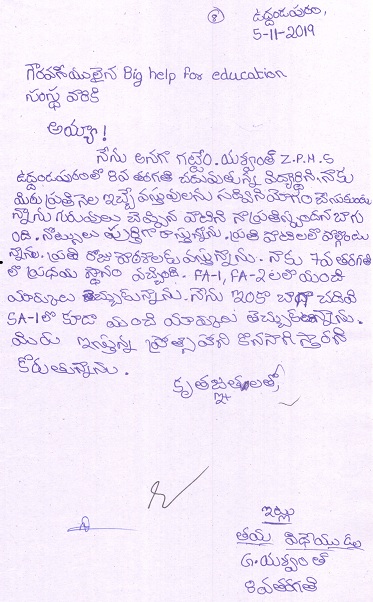 8
ఉద్దండపురం,
5-11-2019
గౌరవనీయులైన Big help for education
సంస్థ వారికి
అయ్యా!
నేను అనగా గట్టెం. యశ్వంత్ Z.P.H.S
ఉద్దండపురంలో 8వ తరగతి చదువుతున్న విద్యార్థిని. నాకు
మీరు ప్రతి నెల ఇచ్చే వస్తువులను సద్వినియోగం చేసుకుంటు
న్నాను చెప్పిన వాటికి నా ప్రతిస్పందన బాగు
ంది. నోట్సులు పూర్తిగా రాస్తున్నాను. ప్రతి పాల్గొంటు
న్నాను. ప్రతి రోజు వస్తున్నాను. నాకు 7వ తరగతి
లో ప్రథమ స్థానం వచ్చింది. FA-1, FA-2 లలో మంచి
మార్కులు తెచ్చుకున్నాను. నేను ఇంకా బాగా చదివి
SA-1లో కూడా మంచి మార్కులు తెచ్చుకుంటాను.
మీరు ఇస్తున్న ప్రోత్సాహాన్ని కొనసాగిస్తారని
కోరుతున్నాను.
కృతజ్ఞతలతో,
ఇట్లు
తమ విధేయుడు
G. యశ్వంత్
8వ తరగతి